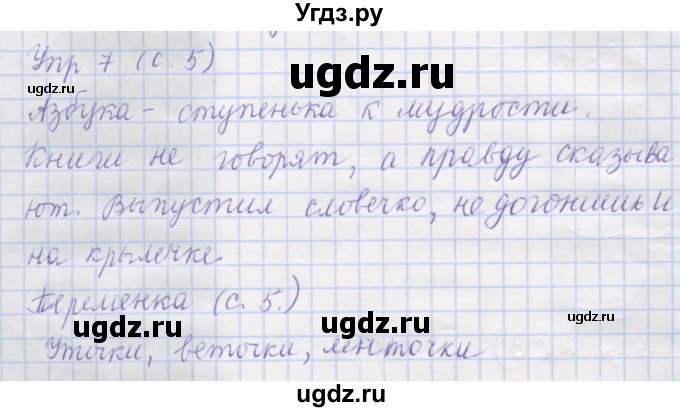 Угдз.ру
Упр 7 (с. 5)
ugdz.ru
ugdz.ru
ugdz.ru
Азбука - ступенька к мудрости.
Книги не говорят, а правду сказыва
ugdz.ru
ют. Выпустил словечко, не догонишь и
на крылечке.
ugdz.ru
ugdz.ru
Переменка (с. 5.)
ugdz.ru
Уточки, веточки, ленточки
ugdz.ru